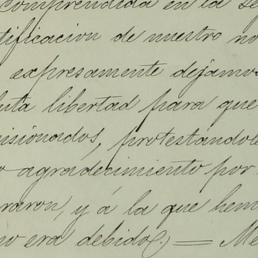 comprendida en la se
tificacion de nuestro no
expresamente dejamos
luta libertad para que
misionados, protestándole
o agradecimiento por
raron, y á la que hem
no era debido. = Me